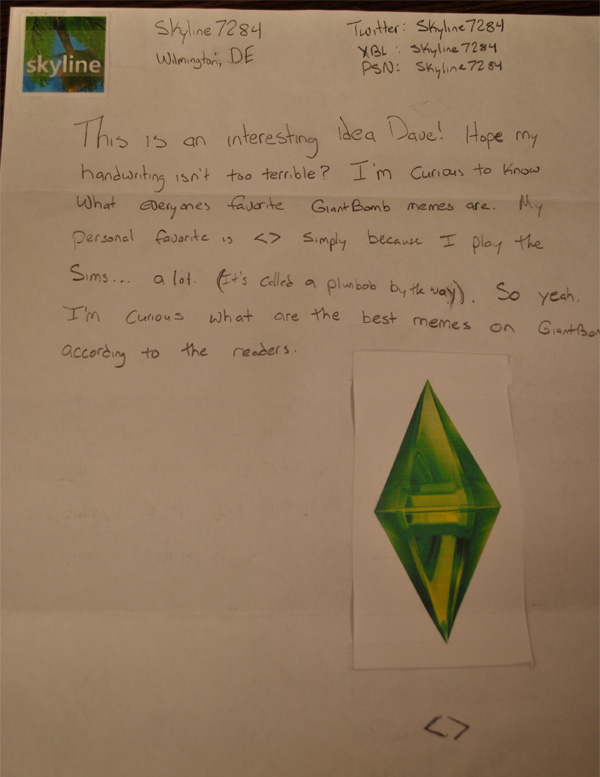 skyline
Skyline7284
Wilmington, DE
Twitter: Skyline7284
XBL: Skyline7284
PSN: Skyline7284
This is an interesting idea Dave! Hope my
handwriting isn't too terrible? I'm curious to know
what everyones favorite GiantBomb memes are. My
personal favorite is <> simply because I play the
Sims... a lot. (It's called a plumbob by the way). So yeah.
I'm curious what are the best memes on GiantBom
according to the readers.
<>